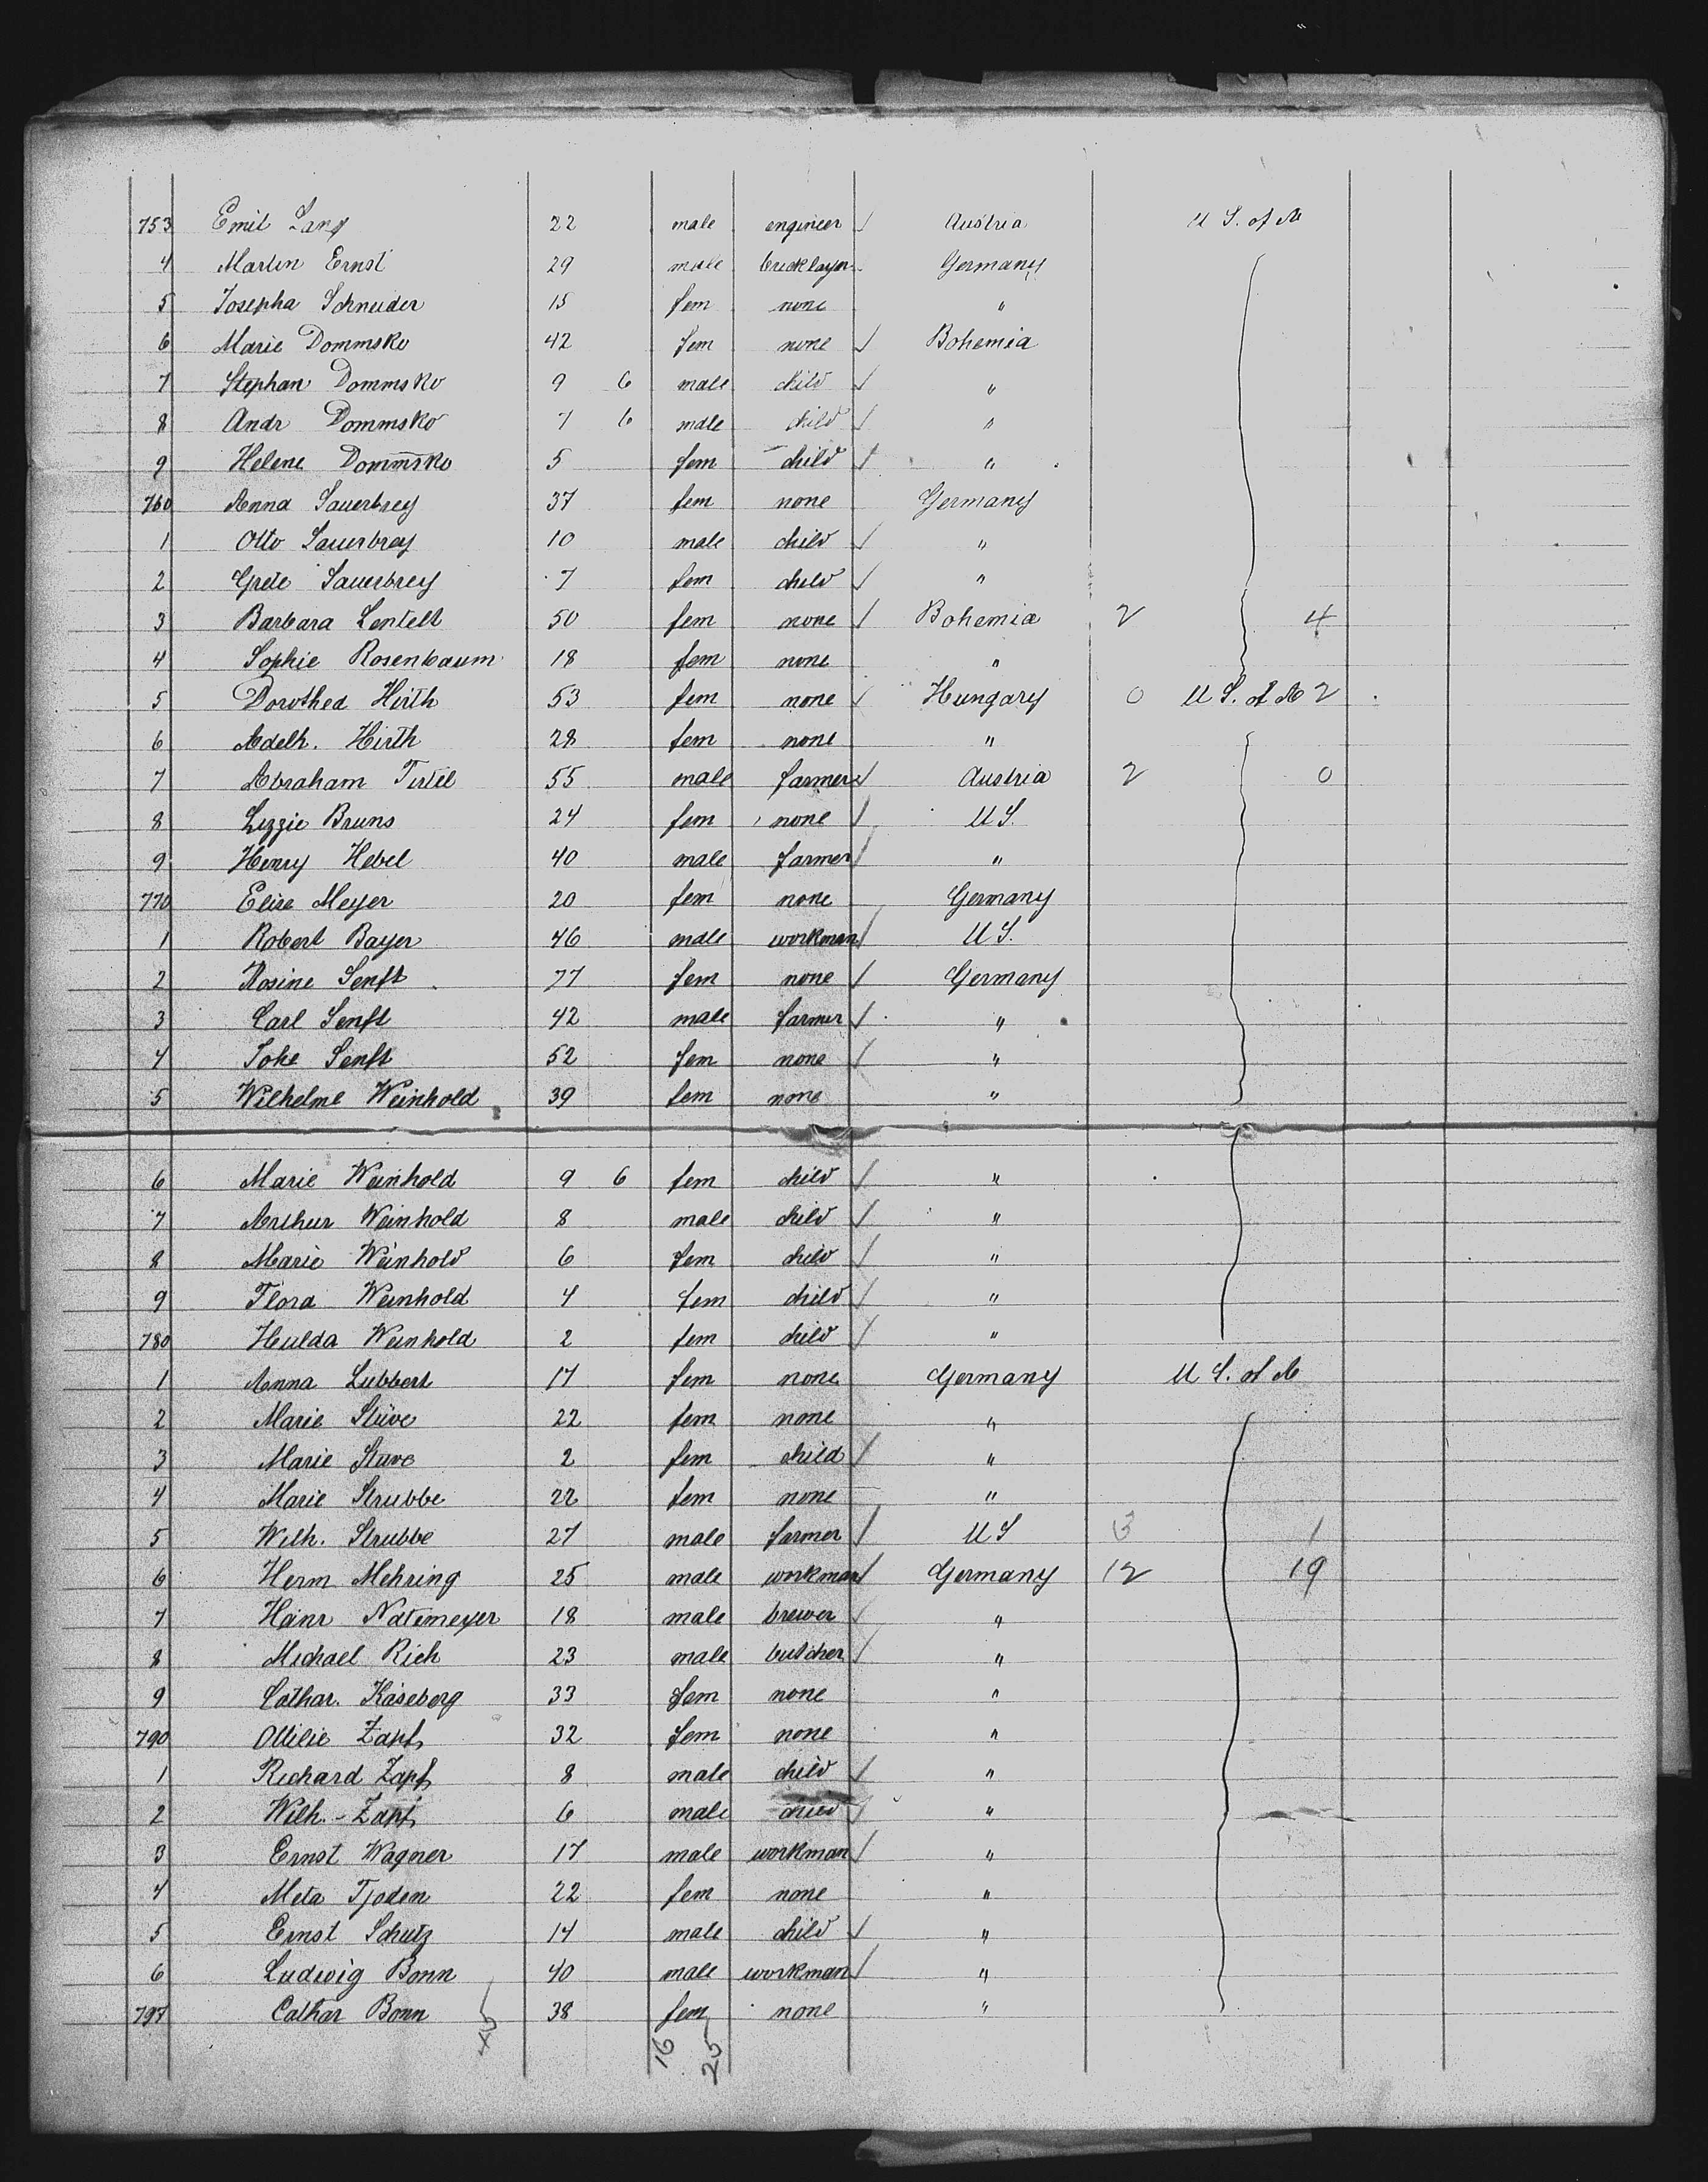 753 Emil Lang 22 male engineer Austria U S. of A
4 Martin Ernst 29 male bricklayer Germany
5 Josepha Schneider 15 fem none "
6 Marie Dommsko 42 fem none Bohemia
7 Stephan Dommsko 9 6 male child "
8 Andr Dommsko 7 6 male child "
9 Helene Dommsko 5 fem child "
760 Anna Sauerbrey 37 fem none Germany
1 Otto Sauerbrey 10 male child "
2 Grete Sauerbrey 7 fem child "
3 Barbara Lentelt 50 fem none Bohemia 2 4
4 Sophie Rosenbaum 18 fem none "
5 Dorothea Hirth 53 fem none Hungary 0 U S. of A 2
6 Adelh. Hirth 28 fem none "
7 Abraham 55 male farmer Austria 2 0
8 Lizzie Bruns 24 fem none U S.
9 Henry Hebel 40 male farmer "
770 Elise Meyer 20 fem none Germany
1 Robert Bayer 46 male workman U S.
2 Rosine Senft 77 fem none Germany
3 Carl Senft 42 male farmer "
4 Johe Senft 52 fem none "
5 Wilhelme Weinhold 39 fem none "
6 Marie Weinhold 9 6 fem child "
7 Arthur Weinhold 8 male child "
8 Marie Weinhold 6 fem child "
9 Flora Weinhold 4 fem child "
780 Hulda Weinhold 2 fem child "
1 Anna Lubbert 17 fem none Germany U S. of A
2 Marie Stüve 22 fem none "
3 Marie Stuve 2 fem child "
4 Marie Strubbe 22 fem none "
5 Wilh. Strubbe 27 male farmer U S 3 1
6 Herm Mehring 25 male workman Germany 12 19
7 Heinr Natemeyer 18 male brewer "
8 Michael Rich 23 male butcher "
9 Cathar. Käseberg 33 fem none "
790 Ottilie Zapf 32 fem none "
1 Richard Zapf 8 male child "
2 Wilh. - Zapf 6 male child "
3 Ernst Wagner 17 male workman "
4 Meta Tjoden 22 fem none "
5 Ernst Schutz 14 male child "
6 Ludwig Bonn 40 male workman "
797 Cathar Bonn 38 fem none "
45 16 25